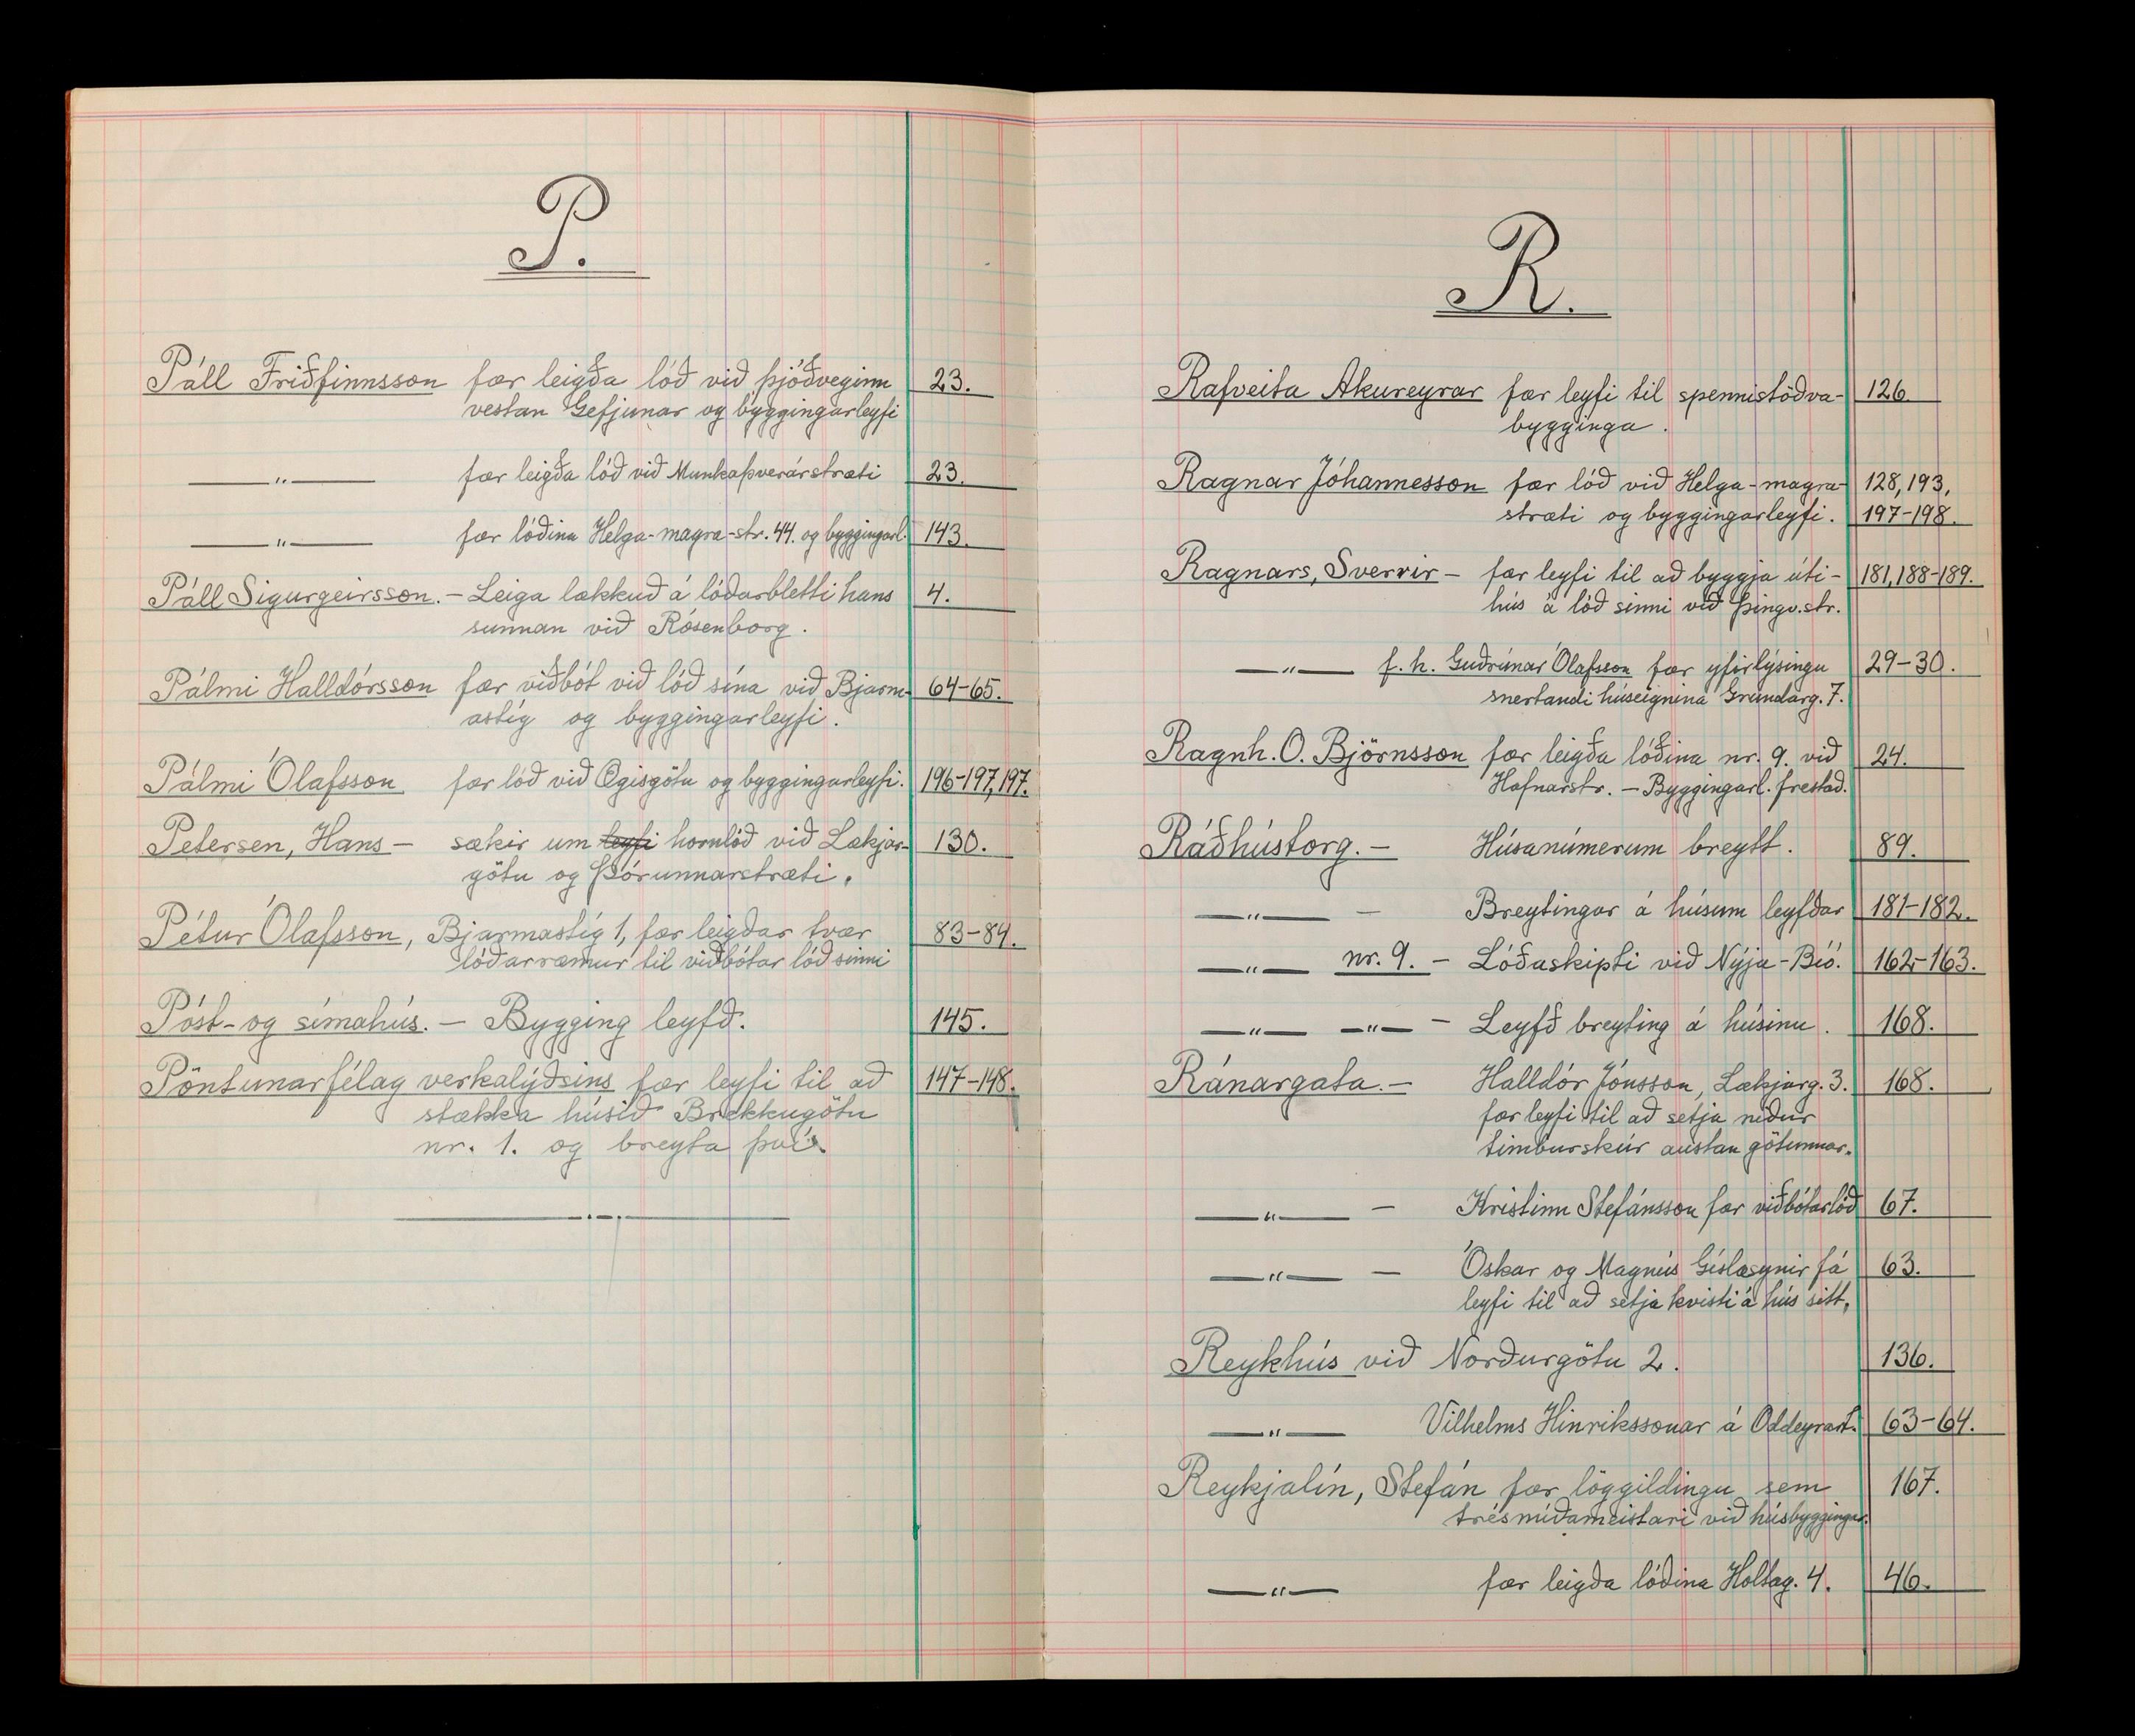 P.
Páll Friðfinnsson fær leigða lóð við þjóðveginn 23.
vestan Gefjunar og byggingarleyfi
—〃— fær leigða lóð við Munkaþverárstræti 23.
—〃— fær lóðina Helga-magra-str. 44. og byggingarl. 143.
Páll Sigurgeirsson. – Leiga lækkuð á lóðarbletti hans 4.
sunnan við Rósenborg.
Pálmi Halldórsson fær viðbót við lóð sína við Bjarm- 64-65.
astíg og byggingarleyfi.
Pálmi Ólafsson fær lóð við Ægisgötu og byggingarleyfi. 196-197, 197.
Petersen, Hans – sækir um leyfi hornlóð við Lækjar- 130.
götu og Þórunnarstræti.
Pétur Ólafsson, Bjarmastíg 1, fær leigðar tvær 83-84.
lóðarræmur til viðbótar lóð sinni
Póst- og símahús. – Bygging leyfð. 145.
Pöntunarfélag verkalýðsins fær leyfi til að 147-148.
stækka húsið Brekkugötu
nr. 1. og breyta því.
R.
Rafveita Akureyrar fær leyfi til spennistöðva- 126.
bygginga.
Ragnar Jóhannesson fær lóð við Helga-magra- 128, 193,
stræti og byggingarleyfi. 197-198.
Ragnars, Sverrir – fær leyfi til að byggja úti- 181, 188-189.
hús á lóð sinni við Þingv.str.
—〃— f. h. Guðrúnar Ólafsson fær yfirlýsingu 29-30.
snertandi húseignina Grundarg. 7.
Ragnh. O. Björnsson fær leigða lóðina nr. 9. við 24.
Hafnarstr. – Byggingarl. frestað.
Ráðhústorg. – Húsanúmerum breytt. 89.
—〃— – Breytingar á húsum leyfðar 181-182.
—〃— nr. 9. – Lóðaskipti við Nýja-Bíó. 162-163.
—〃— —〃— – Leyfð breyting á húsinu. 168.
Ránargata. – Halldór Jónsson, Lækjarg. 3. 168.
fær leyfi til að setja niður
timburskúr austan götunnar.
—〃— – Kristinn Stefánsson fær viðbótarlóð 67.
—〃— – Óskar og Magnús Gíslasynir fá 63.
leyfi til að setja kvisti á hús sitt,
Reykhús við Norðurgötu 2. 136.
—〃— Vilhelms Hinrikssonar á Oddeyrart. 63-64.
Reykjalín, Stefán fær löggildingu sem 167.
trésmíðameistari við húsbyggingar.
—〃— fær leigða lóðina Holtag. 4. 46.